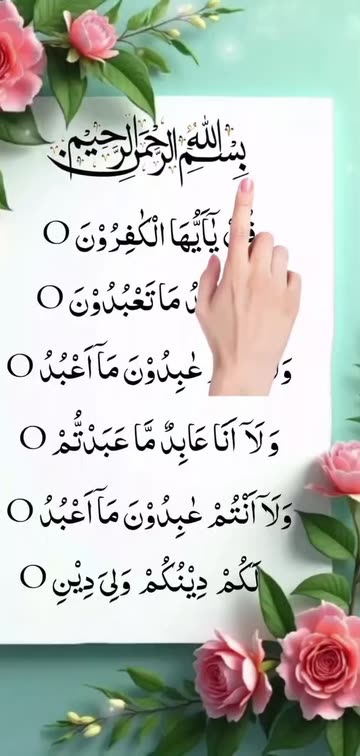 بِسْمِ اللهِ الرَّحْمٰنِ الرَّحِيْمِ
يٰٓاَيُّهَا الْكٰفِرُوْنَ ○
مَا تَعْبُدُوْنَ ○
عٰبِدُوْنَ مَآ اَعْبُدُ ○
وَلَآ اَنَا عَابِدٌ مَّا عَبَدْتُّمْ ○
وَلَآ اَنْتُمْ عٰبِدُوْنَ مَآ اَعْبُدُ ○
لَكُمْ دِيْنُكُمْ وَلِيَ دِيْنِ ○